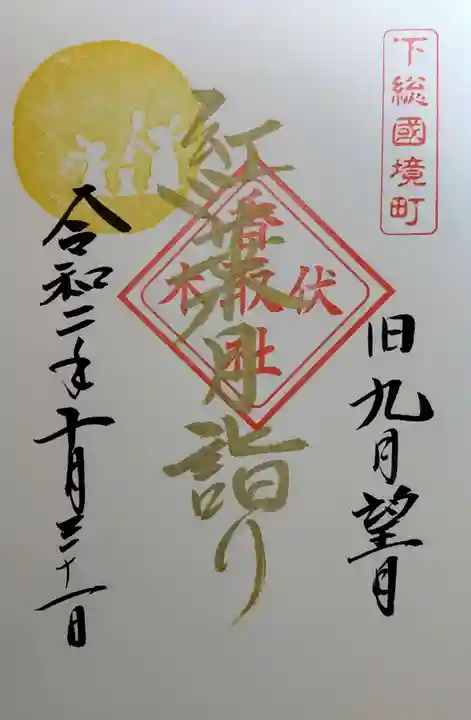 下総國境町
旧九月望月
伏木
香取社
紅葉月詣り
令和二年十月三十一日